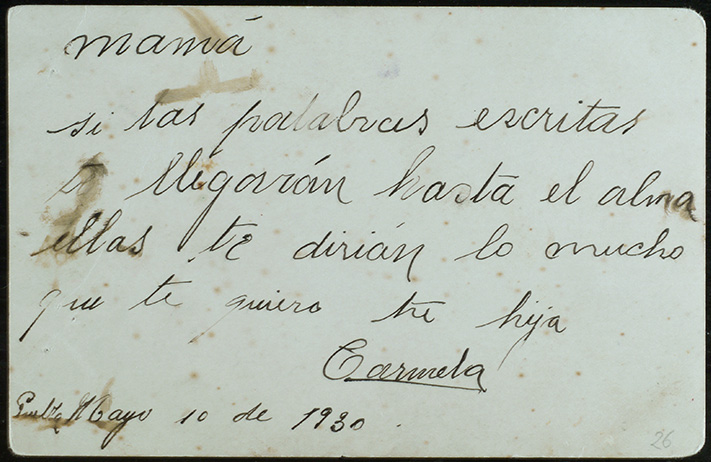 mamá
si las palabras escritas
te llegarán hasta el alma
ellas te dirián lo mucho
que te quiero tu hija
Carmela
Puebla Mayo 10 de 1930.
26